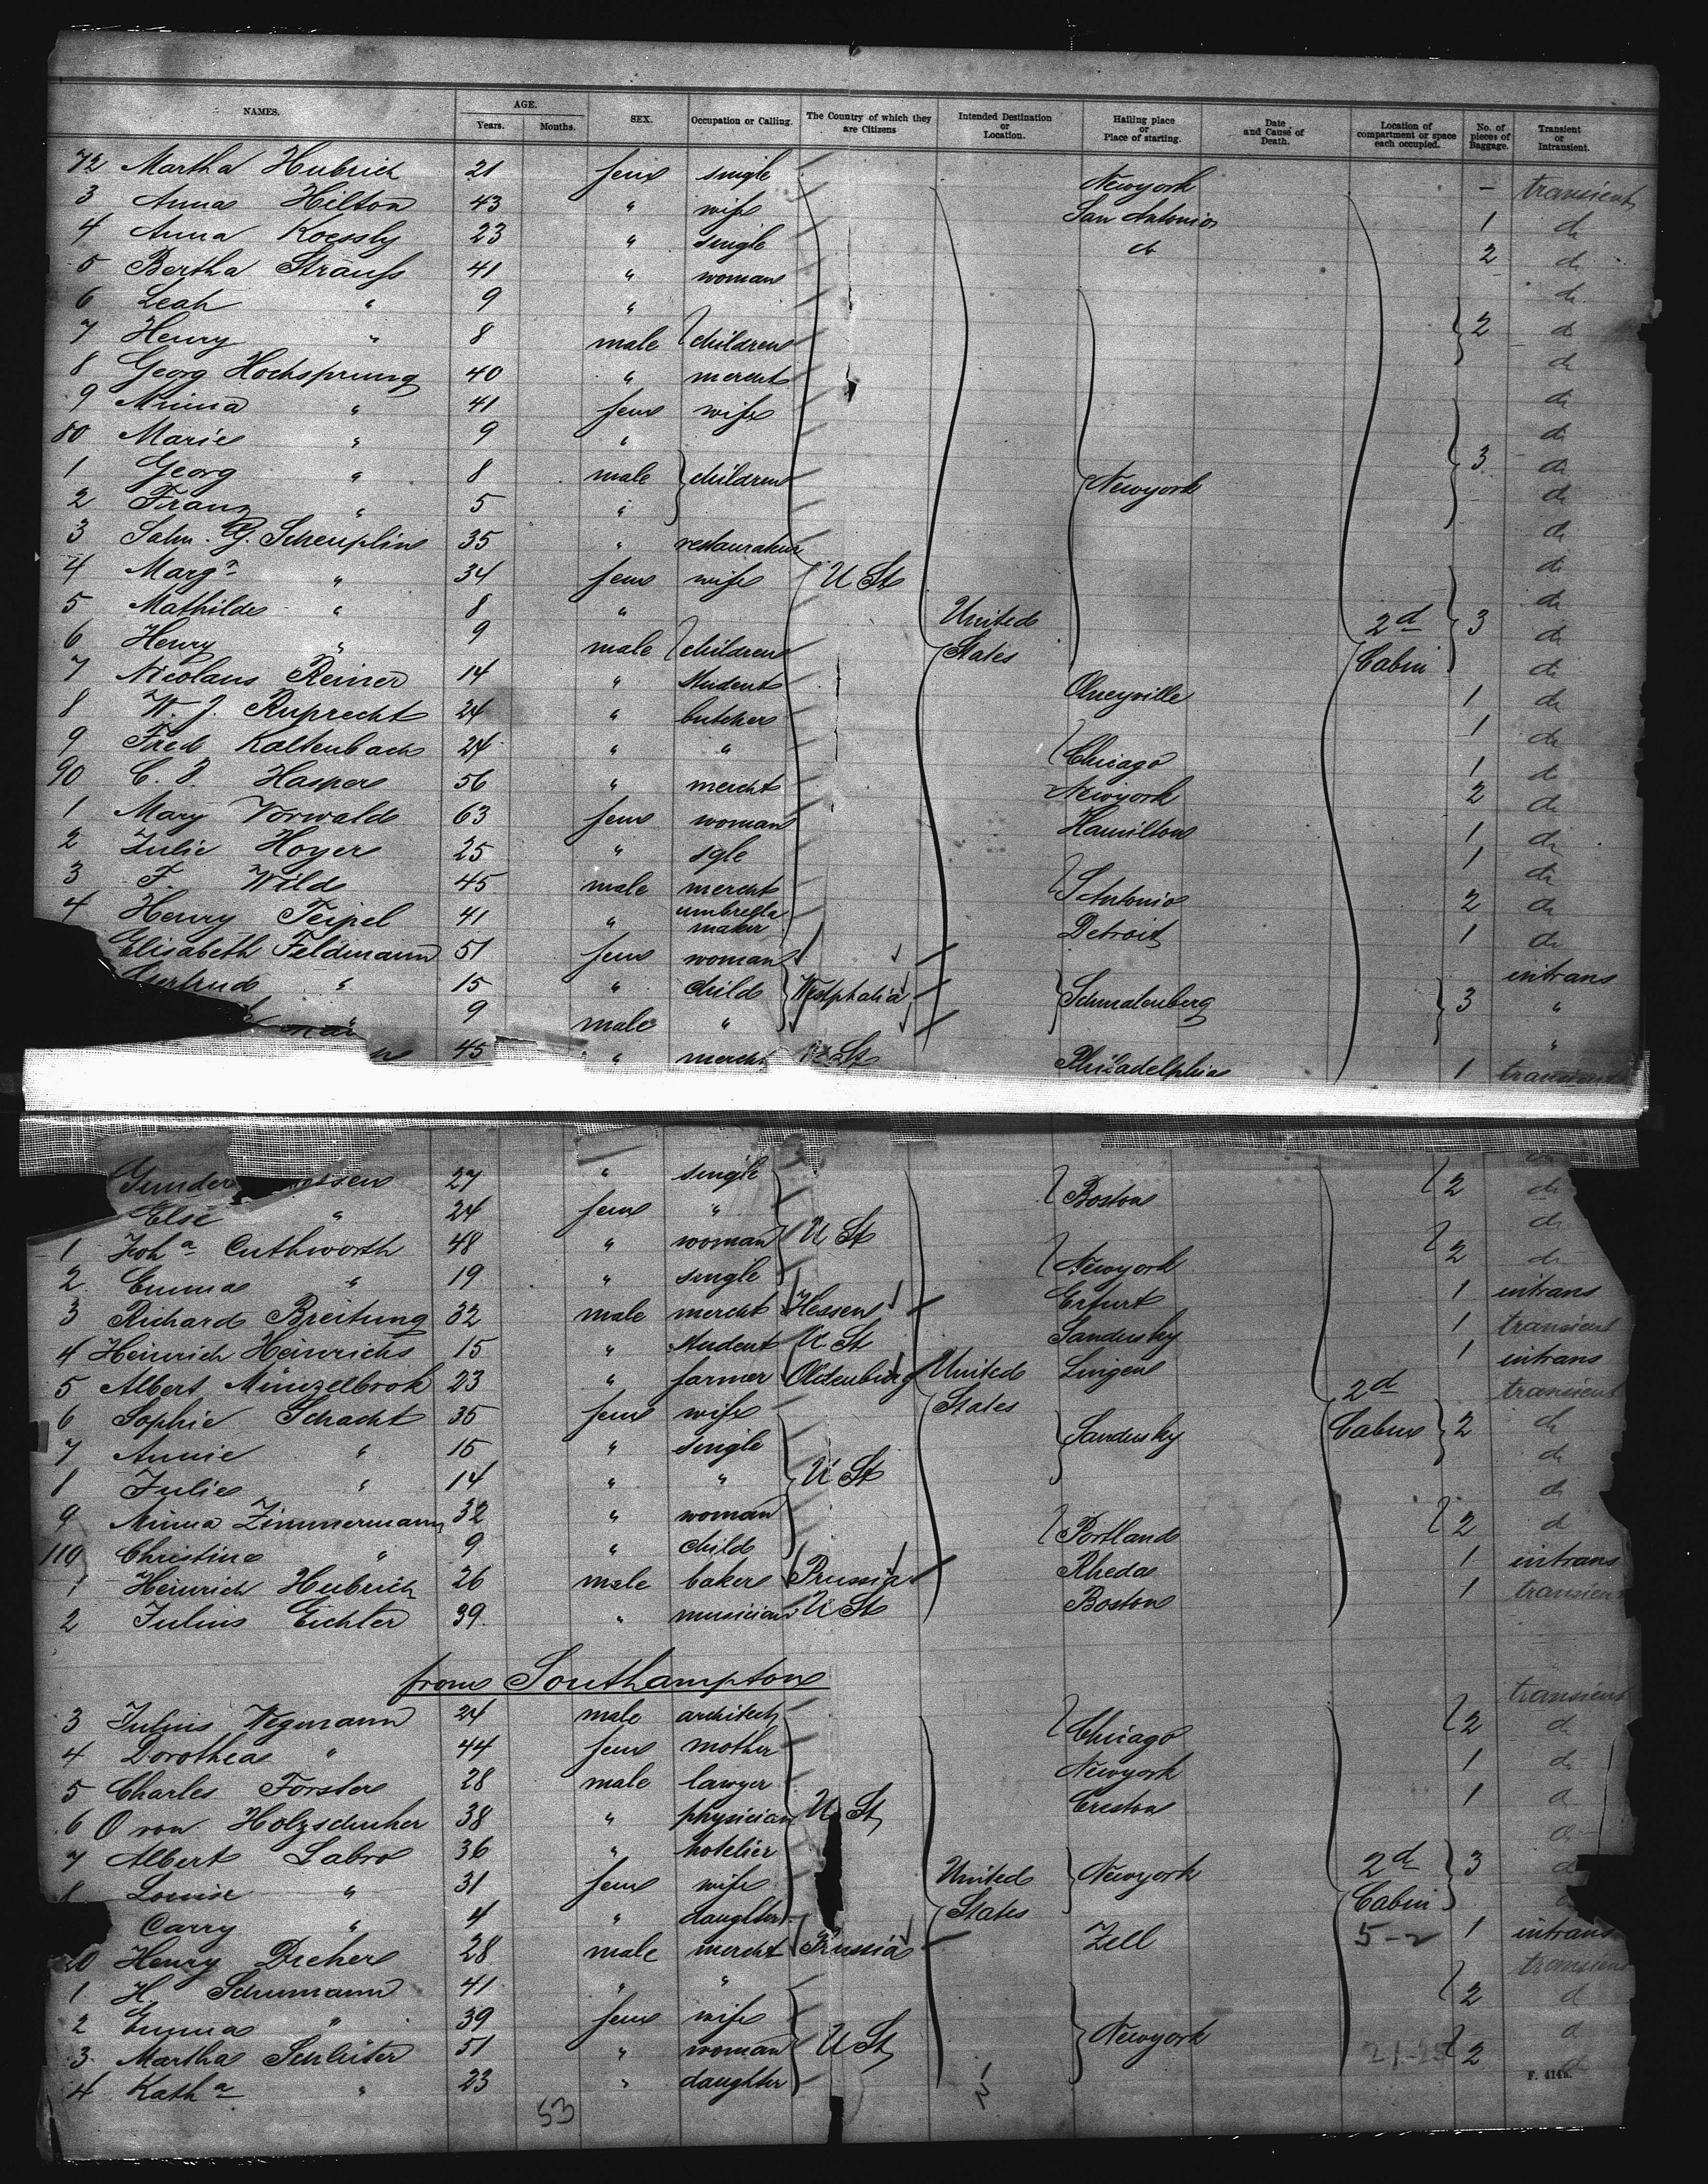 NAMES. AGE. Years. Months. SEX. Occupation or Calling. The Country of which they are Citizens Intended Destination or Location. Hailing place or Place of starting. Date and Cause of Death. Location of compartment or space each occupied. No. of pieces of Baggage. Transient or Intransient.
72 Martha Hubrich 21 fem single Newyork - transient
3 Anna Hilton 43 " wife San Antonio 1 do
4 Anna Koessly 23 " single do 2 do
5 Bertha Strauß 41 " woman do
6 Leah " 9 " 2 do
7 Henry " 8 male children do
8 Georg Hochsprung 40 " mercht do
9 Minna " 41 fem wife do
80 Marie " 9 " 3 do
1 Georg " 8 male children Newyork do
2 Franz " 5 " do
3 G. Scheuplin 35 " restaurateur do
4 Marga " 34 fem wife U St do
5 Mathilde " 8 " United 2d 3 do
6 Henry " 9 male children States Cabin do
7 Nicolaus Reiner 14 " Student Olneyville 1 do
8 W. J. Ruprecht 24 " butcher 1 do
9 Fred Kaltenbach 24 " " Chicago 1 do
90 C. Hasper 56 " mercht Newyork 2 do
1 Mary Vorwald 63 fem woman Hamilton 1 do
2 Julie Hoyer 25 " sgle 1 do
3 F. Wild 45 male mercht S Antonio 2 do
4 Henry Teipel 41 " umbrella maker Detroit 1 do
Elisabeth Feldmann 51 fem woman intrans
Gertrud " 15 " child Westphalia Schmalenberg 3 "
" 9 male " "
45 " mercht U St Philadelphia 1 transient
Gunder 27 " single 2 do
Else " 24 fem " Boston do
1 Joha Cuthworth 48 " woman U St 2 do
2 Emma " 19 " single Newyork
3 Richard Breitung 32 male mercht Hessen Erfurt 1 intrans
4 Heinrich Heinrichs 15 " Student U St Sandusky 1 transient
5 Albert Münzelbrok 23 " farmer Oldenburg United Lingen 1 intrans
6 Sophie Schacht 35 fem wife States 2d transient
7 Annie " 15 " single Sandusky Cabin 2 do
8 Julie " 14 " " U St do
9 Minna Zimmermann 32 " woman 2 do
110 Christine " 9 " child Portland do
1 Heinrich Hubrich 26 male baker Prussia Rheda 1 intrans
2 Julius Eichler 39 " musician U St Boston 1 transient
from Southampton
3 Julius Wegmann 24 male architect 2 transient
4 Dorothea " 44 fem mother Chicago do
5 Charles Forster 28 male lawyer Newyork 1 do
6 O von Holzschuher 38 " physician U St Creston 1 do
7 Albert Labro 36 " hotelier 2d 3 do
8 Louise " 31 fem wife United Newyork Cabin do
Carry " 4 " daughter States
20 Henry Dreher 28 male mercht Prussia Zell 5-2 1 intrans
1 H. Schumann 41 " " 2 transient
2 Emma " 39 fem wife do
3 Martha Schlüter 51 " woman U St Newyork 2 do
4 Katha " 23 " daughter
53
F. 414b.